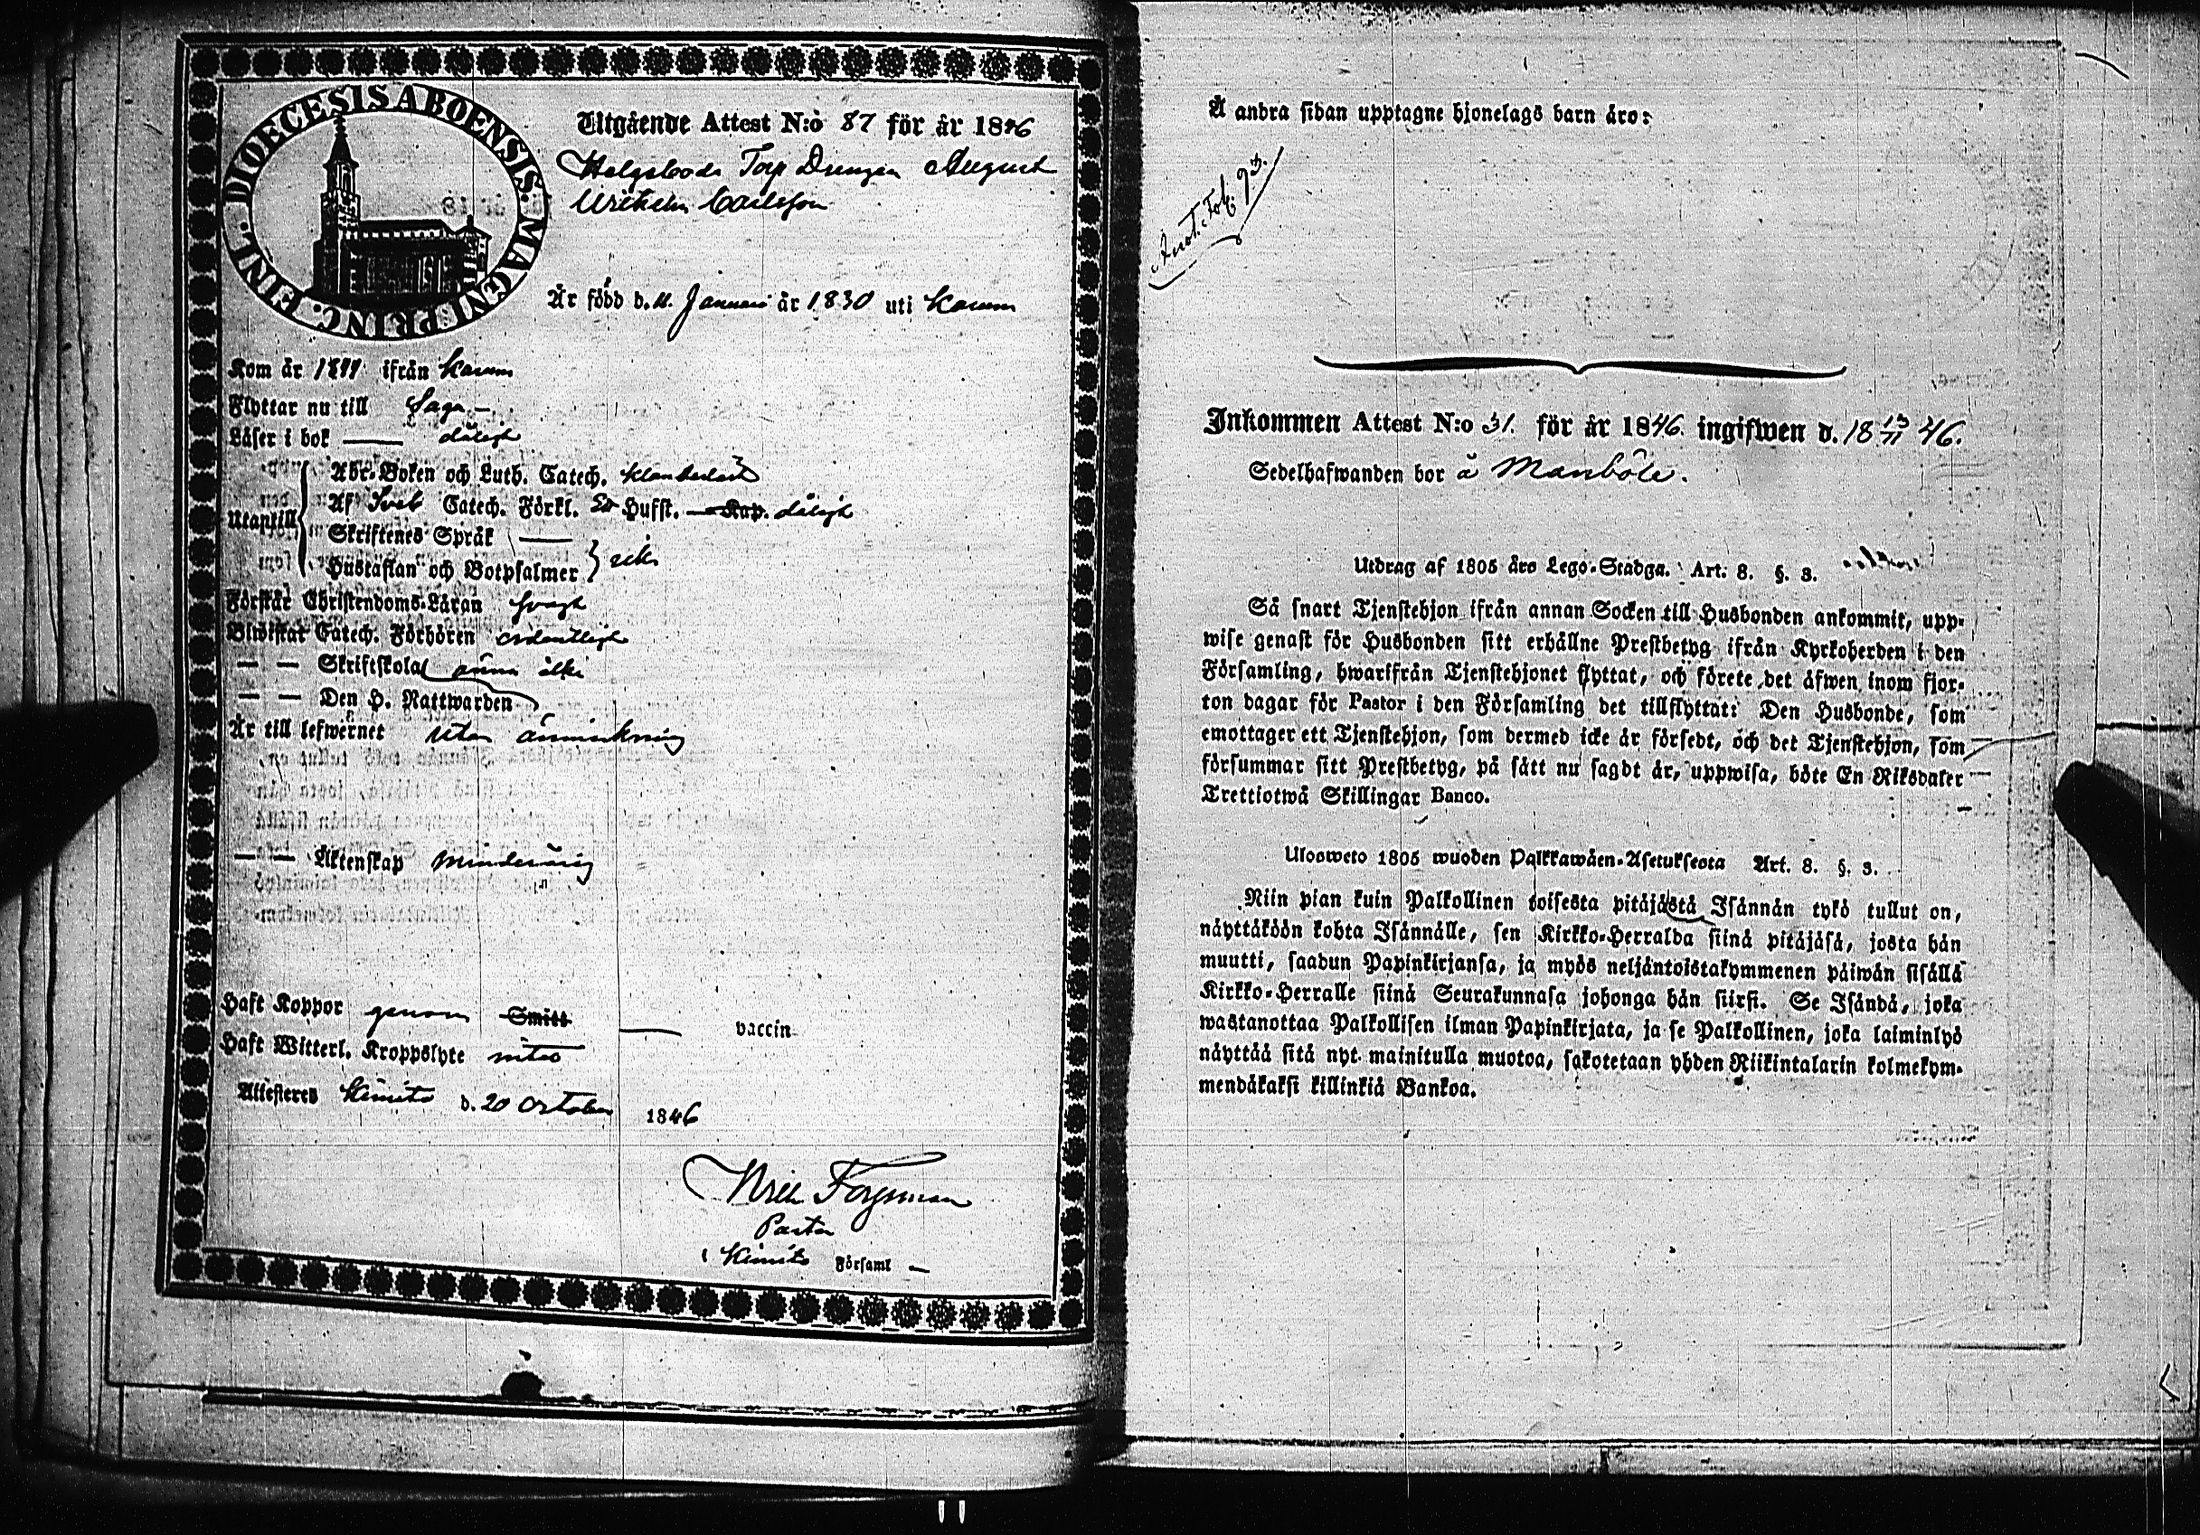 DIOECESIS ABOENSIS. MAGNI PRINC. FINL.
Utgående Attest N:o 87 för år 1846
Helgeboda Torp Drengen August
Wilhelm Carlsson
Är född d. 11. Januari år 1830 uti Karuna
Kom år 1844 ifrån Karuna
Flyttar nu till Sagu
Läser i bok dåligt
Utantill
Abc-Boken och Luth. Catech.
Af Sveb Catech. Förkl. Hufst. Kap. dåligt
Skriftenes Språk
Hustaflan och Botpsalmer
Förstår Christendoms-Läran svagt
Biwistat Catech. Förhören ordentligt
— — Skriftskola ännu icke
— — Den H. Nattwarden
Är till lefwernet utan anmärkning
— — Äktenskap minderårig
Haft Koppor genom Smitt vaccin
Haft Witterl. Kroppslyte intet
Attesteras Kimito d. 20 October 1846
Forsman
Pastor
i Kimito Församl
Å andra sidan upptagne hjonelags barn äro:
Inkommen Attest N:o 31. för år 1846. ingifwen d. 18 13/11 46.
Sedelhafwanden bor å Manböle.
Utdrag af 1805 års Lego-Stadga. Art: 8. §. 3.
Så snart Tjenstehjon ifrån annan Socken till Husbonden ankommit, upp-
wise genast för Husbonden sitt erhållne Prestbetyg ifrån Kyrkoherden i den
Församling, hwarifrån Tjenstehjonet flyttat, och förete det äfwen inom fjor-
ton dagar för Pastor i den Församling det tillflyttat: Den Husbonde, som
emottager ett Tjenstehjon, som dermed icke är försedt, och det Tjenstehjon, som
försummar sitt Prestbetyg, på sätt nu sagdt är, uppwisa, böte En Riksdaler
Trettiotwå Skillingar Banco.
Ulosweto 1805 wuoden Palkkawäen-Asetuksesta Art. 8. §. 3.
Niin pian kuin Palkollinen toisesta pitäjästä Isännän tykö tullut on,
näyttäköön kohta Isännälle, sen Kirkko-Herralda siinä pitäjäsä, josta hän
muutti, saadun Papinkirjansa, ja myös neljäntoistakymmenen päiwän sisällä
Kirkko-Herralle siinä Seurakunnasa johonga hän siirsi. Se Isändä, joka
wastanottaa Palkollisen ilman Papinkirjata, ja se Palkollinen, joka laiminlyö
näyttää sitä nyt mainitulla muotoa, sakotetaan yhden Riikintalarin kolmekym-
mendäkaksi killinkiä Bankoa.